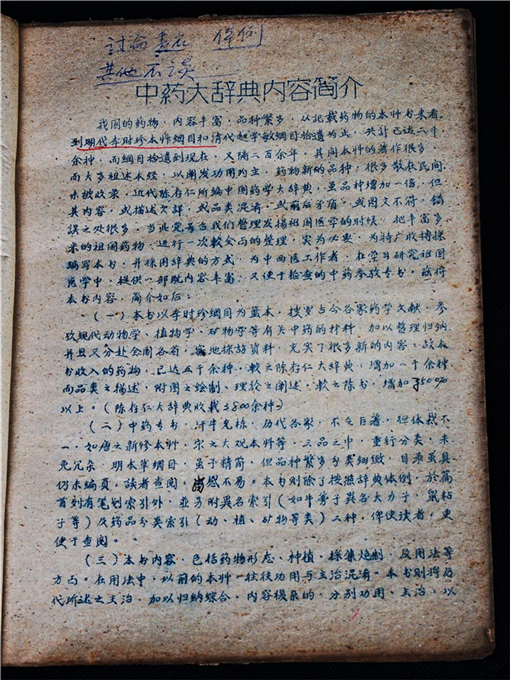 讨论 其他
体例
其他不误
中药大辞典内容简介
我国的药物，内容丰富，品种繁多，以记载药物的本艸书来看，
到明代李时珍本艸纲目和清代赵学敏纲目拾遗为止，共计已达二千
余种，而纲目拾遗到现在，又隔二百余年，其间本艸的著作很多，
而大多祖述本经，以阐发功用为主，药物新的品种，很多散在民间，
未被收录，近代陈存仁所编中国药学大辞典，虽品种增加一倍，但
其内容，或描述欠详，或品类混淆，或前后矛盾，或图文不符，错
误之处很多，当此党号召我们整理发扬祖国医学的时候，把丰富多
采的祖国药物，进行一次较全面的整理，实为必要，为特广收博採
编写本书，并採用辞典的方式，为中西医工作者，在学习研究祖国
医学中，提供一部既内容丰富，又便于检查的中药参考专书，兹将
本书内容，简介如后：
（一）本书以李时珍纲目为蓝本，搜罗古今各家药学文献，参
考现代动物学、植物学、矿物学等有关中药的材料，加以整理归纳，
并且又分赴全国各省，实地採访资料，充实了很多新的内容，故本
书收入的药物，已达五千余种，较之陈存仁大辞典，增加一千余种
而品类之描述，附图之绘制，理论之阐述，较之陈书，增加了50%
以上。（陈存仁大辞典收载3800余种）
（二）中药专书，汗牛充栋，历代各家，不乏巨著，但体裁不
一，如唐之新修本艸，宋之大观本艸等，三品之中，重行分类，未
免冗杂，明本草纲目，虽于精简，但品种繁多分类细緻，目录虽具，
仍未编页，读者查阅，尚感不易。本书则除了按照辞典体例，於篇
首列有笔划索引外，並另附异名索引（如牛蒡子异名大力子，鼠粘
子等）及药品分类索引（动、植、矿物等类）二种，俾使读者，更
便于查阅。
（三）本书内容，包括药物形态，种植，採集炮制，及用法等
方面。在用法中，以前的本艸，往往功用与主治混淆，本书则将历
代所述之主治，加以归纳综合，内容极杂的，分别功用、主治，以